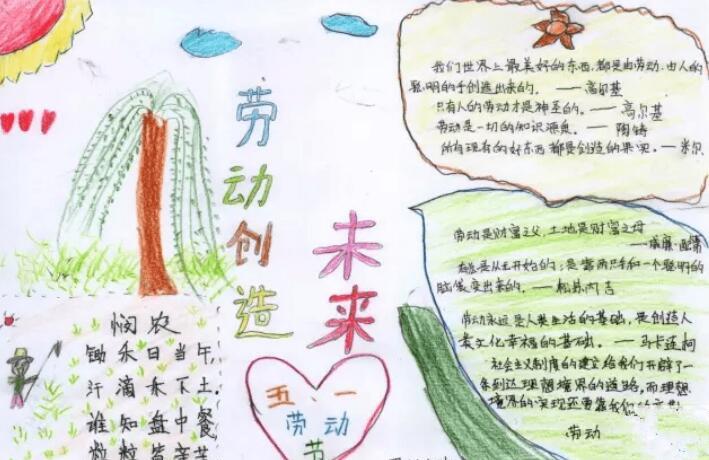 劳动创造
未来
我们世界上最美好的东西,都是由劳动、由人的
聪明的手创造出来的。——高尔基
只有人的劳动才是神圣的。——高尔基
劳动是一切的知识源泉。——陶铸
所有现有的好东西都是创造的果实。——米尔
劳动是财富之父,土地是财富之母
是从无开始的;是靠两只手和一个聪明的
脑袋变出来的。——松苏内吉
劳动永远是人类生活的基础,是创造人
类文化幸福的基础。——马卡连柯
社会主义制度的建立给我们开辟了一
条到达理想境界的道路,而理想
境界的实现还要靠我们的
劳动
悯农
锄禾日当午,
汗滴禾下土.
谁知盘中餐
粒粒皆辛苦
五、一
劳动
节